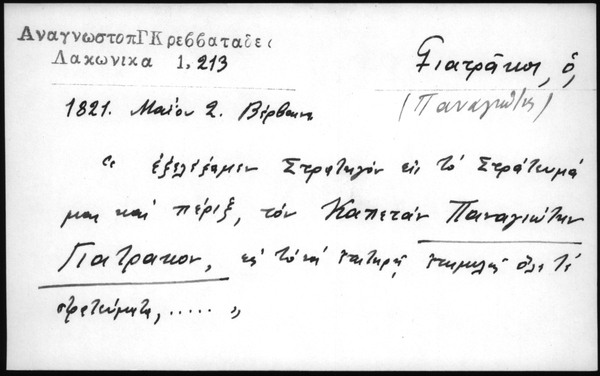 ΑναγνωστοπΓΚρεββαταδες
Λακωνικα 1,213
Γιατράκος, ὁ,
(Παναγιώτης)
1821. Μαΐου 2. Βέρβαινα
" ἐξελέξαμεν Στρατηγόν εις τό Στράτευμά
μας και πέριξ, τόν Καπετάν Παναγιώτην
Γιατράκον, εις τό νά όλα τά
στρατεύματα, ..... "